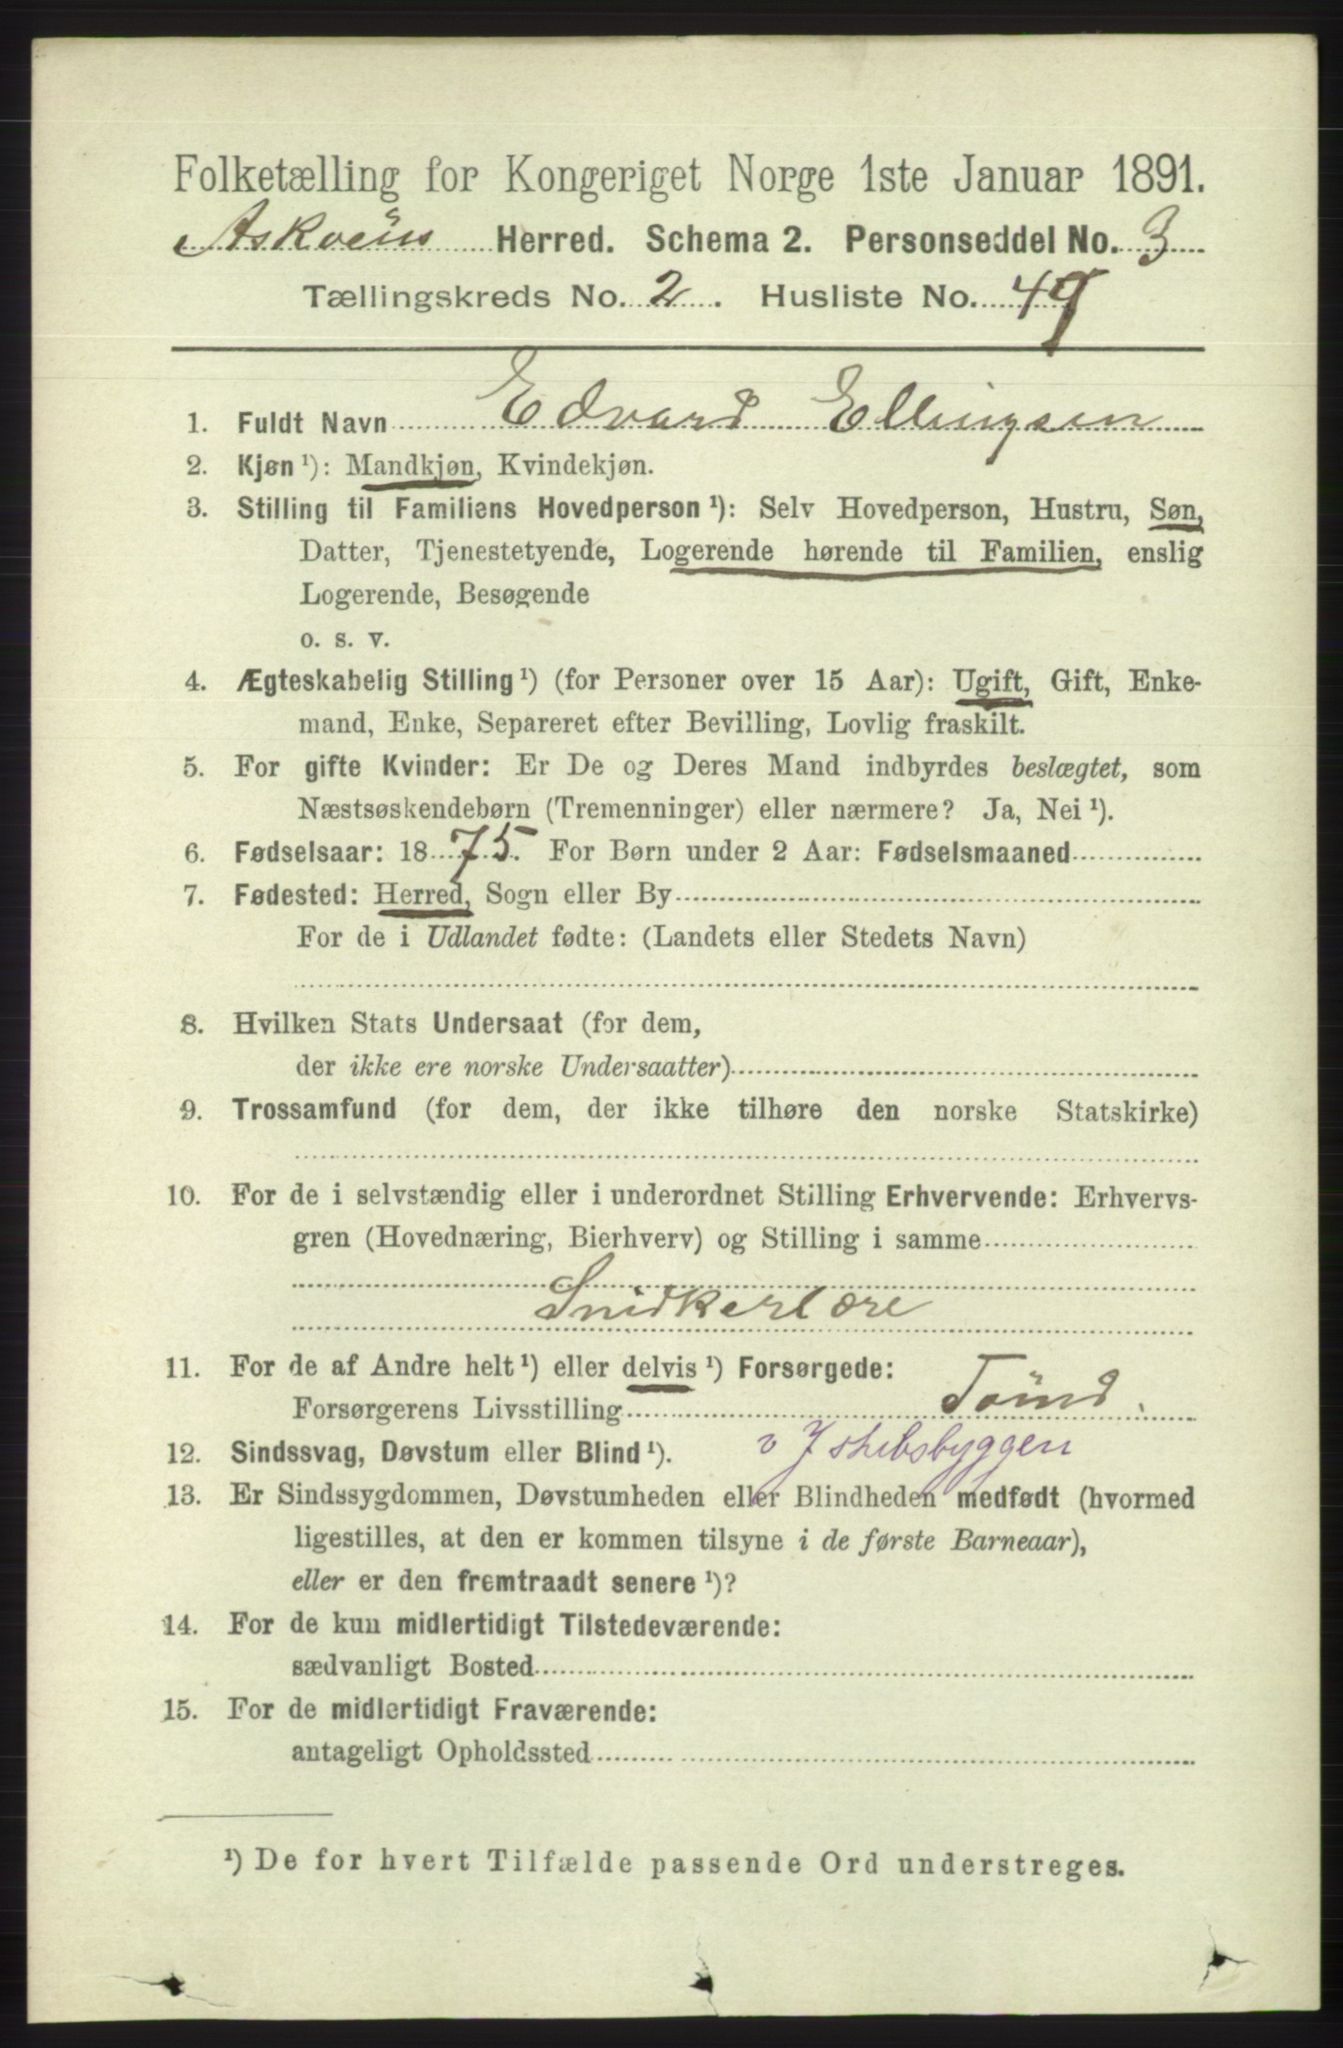 Folketælling for Kongeriget Norge 1ste Januar 1891.
Askvens Herred. Schema 2. Personseddel No. 3
Tællingskreds No. 2. Husliste No. 49
1. Fuldt Navn Edvard Ellingsen
2. Kjøn ¹): Mandkjøn, Kvindekjøn.
3. Stilling til Familiens Hovedperson ¹): Selv Hovedperson, Hustru, Søn,
Datter, Tjenestetyende, Logerende hørende til Familien, enslig
Logerende, Besøgende
o. s. v.
4. Ægteskabelig Stilling ¹) (for Personer over 15 Aar): Ugift, Gift, Enke-
mand, Enke, Separeret efter Bevilling, Lovlig fraskilt.
5. For gifte Kvinder: Er De og Deres Mand indbyrdes beslægtet, som
Næstsøskendebørn (Tremenninger) eller nærmere? Ja, Nei ¹).
6. Fødselsaar: 1875. For Børn under 2 Aar: Fødselsmaaned
7. Fødested: Herred, Sogn eller By
For de i Udlandet fødte: (Landets eller Stedets Navn)
8. Hvilken Stats Undersaat (for dem,
der ikke ere norske Undersaatter)
9. Trossamfund (for dem, der ikke tilhøre den norske Statskirke)
10. For de i selvstændig eller i underordnet Stilling Erhvervende: Erhvervs-
gren (Hovednæring, Bierhverv) og Stilling i samme
Snidkerlære
11. For de af Andre helt ¹) eller delvis ¹) Forsørgede:
Forsørgerens Livsstilling Tømd.
12. Sindssvag, Døvstum eller Blind ¹).
13. Er Sindssygdommen, Døvstumheden eller Blindheden medfødt (hvormed
ligestilles, at den er kommen tilsyne i de første Barneaar),
eller er den fremtraadt senere ¹)?
14. For de kun midlertidigt Tilstedeværende:
sædvanligt Bosted
15. For de midlertidigt Fraværende:
antageligt Opholdssted
¹) De for hvert Tilfælde passende Ord understreges.